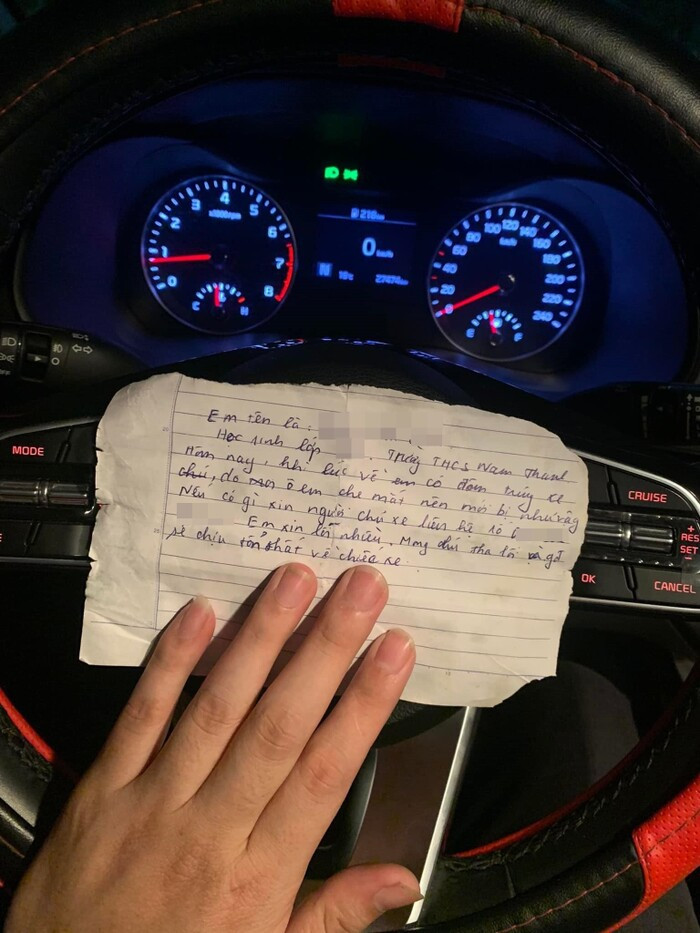 4
3
5
2
x1000rpm
6
1
7
0
8
C
H
218km
0 km/h
N
18°C
27474 km
100
120
140
80
km/h
160
60
180
40
200
20
220
0
240
E
F
MODE
CRUISE
+
RES
SET
-
OK
CANCEL
OFF
O
Em tên là:
Học sinh lớp Trường THCS Nam Thanh
Hôm nay, khi lúc về em có đâm trúng xe
chú, do ô em che mắt nên mới bị như vậy
Nếu có gì xin người chủ xe liên hệ số
Em xin lỗi nhiều, Mong chú tha lỗi gđ
sẽ chịu tổn thất về chiếc xe.